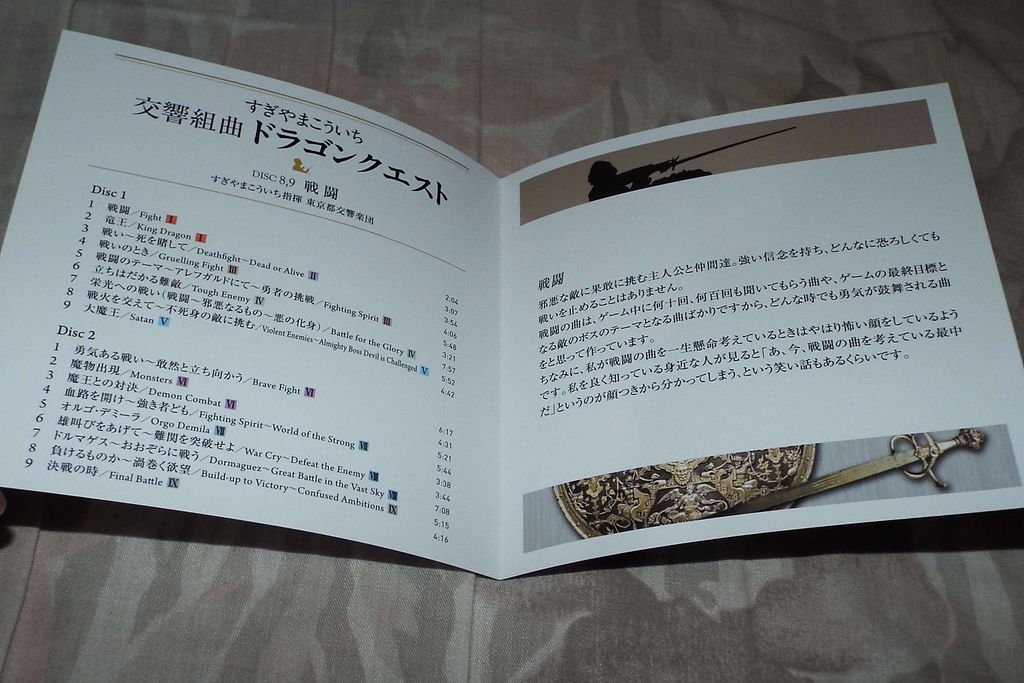 すぎやまこういち
交響組曲 ドラゴンクエスト
DISC 8,9 戦闘
すぎやまこういち指揮 東京都交響楽団
Disc 1
1 戦闘/Fight I 2:04
2 竜王/King Dragon I 3:07
3 戦い〜死を賭して/Deathfight〜Dead or Alive II 3:54
4 戦いのとき/Gruelling Fight III 4:06
5 戦闘のテーマ〜アレフガルドにて〜勇者の挑戦/Fighting Spirit III 5:48
6 立ちはだかる難敵/Tough Enemy IV 3:21
7 栄光への戦い(戦闘〜邪悪なるもの〜悪の化身)/Battle for the Glory IV 7:57
8 戦火を交えて〜不死身の敵に挑む/Violent Enemies〜Almighty Boss Devil is Challenged V 5:52
9 大魔王/Satan V 4:42
Disc 2
1 勇気ある戦い〜敢然と立ち向かう/Brave Fight VI 6:17
2 魔物出現/Monsters VI 4:31
3 魔王との対決/Demon Combat VI 5:21
4 血路を開け〜強き者ども/Fighting Spirit〜World of the Strong VII 5:44
5 オルゴ・デミーラ/Orgo Demila VII 3:38
6 雄叫びをあげて〜難関を突破せよ/War Cry〜Defeat the Enemy VIII 3:44
7 ドルマゲス〜おおぞらに戦う/Dormaguez〜Great Battle in the Vast Sky VIII 7:08
8 負けるものか〜渦巻く欲望/Build-up to Victory〜Confused Ambitions IX 5:15
9 決戦の時/Final Battle IX 4:16
戦闘
邪悪な敵に果敢に挑む主人公と仲間達。強い信念を持ち、どんなに恐ろしくても
戦いを止めることはありません。
戦闘の曲は、ゲーム中に何十回、何百回も聞いてもらう曲や、ゲームの最終目標と
なる敵のボスのテーマとなる曲ばかりですから、どんな時でも勇気が鼓舞される曲
をと思って作っています。
ちなみに、私が戦闘の曲を一生懸命考えているときはやはり怖い顔をしているよう
です。私を良く知っている身近な人が見ると「あ、今、戦闘の曲を考えている最中
だ」というのが顔つきから分かってしまう、という笑い話もあるくらいです。